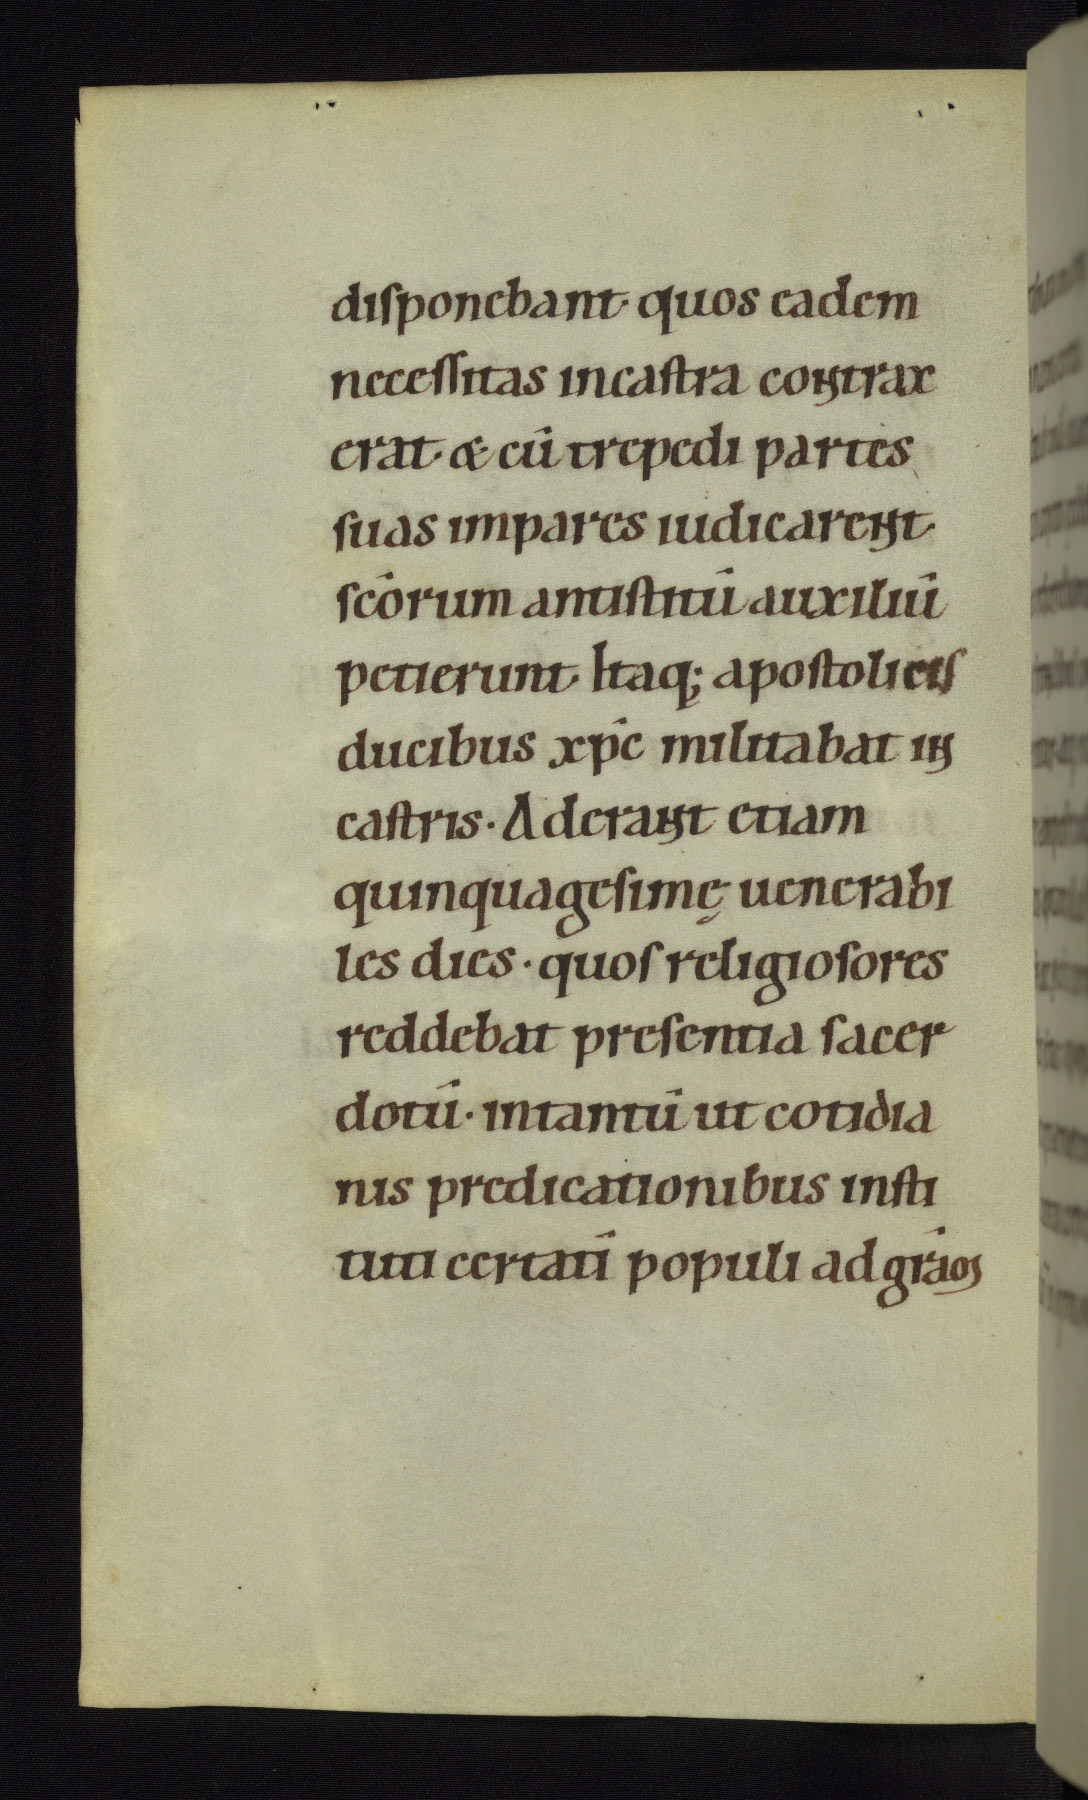 disponebant· quos eadem
necessitas incastra contrax
erat· & cū trepedi partes
suas impares iudicarent·
scōrum antistitū auxiliū
petierunt· Itaq; apostolicis
ducibus xp̄c militabat in
castris· Aderant etiam
quinquagesimę uenerabi
les dies· quos religiosores
reddebat presentia sacer
dotū· intantū ut cotidia
nis predicationibus insti
tuti certatī populi ad grāꝫ